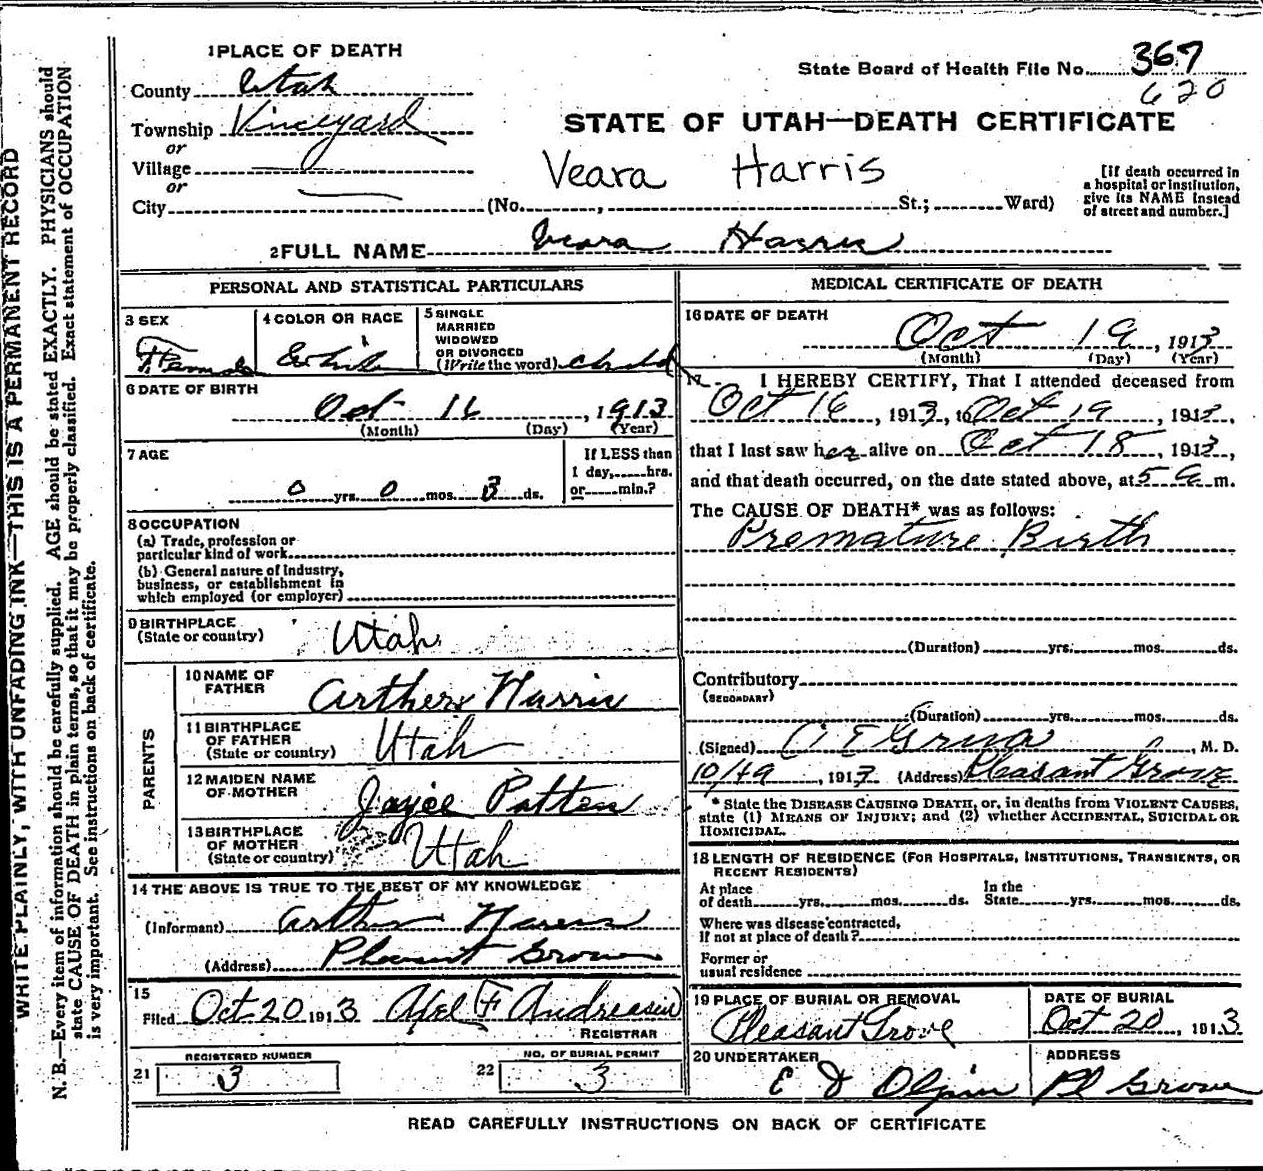 WHITE PLAINLY, WITH UNFADING INK—THIS IS A PERMANENT RECORD
N. B.—Every item of information should be carefully supplied. AGE should be stated EXACTLY. PHYSICIANS should
state CAUSE OF DEATH in plain terms, so that it may be properly classified. Exact statement of OCCUPATION
is very important. See instructions on back of certificate.
1 PLACE OF DEATH
State Board of Health File No. 367
620
County Utah
Township Vineyard
or
Village
or
City
STATE OF UTAH—DEATH CERTIFICATE
Veara Harris
(No. , St.; Ward)
[If death occurred in
a hospital or institution,
give its NAME instead
of street and number.]
2 FULL NAME Veara Harris
PERSONAL AND STATISTICAL PARTICULARS
3 SEX
Female
4 COLOR OR RACE
White
5 SINGLE
MARRIED
WIDOWED
OR DIVORCED
(Write the word) child
6 DATE OF BIRTH
Oct 16, 1913
(Month) (Day) (Year)
7 AGE
0 yrs. 0 mos. 3 ds.
If LESS than
1 day, hrs.
or min.?
8 OCCUPATION
(a) Trade, profession or
particular kind of work
(b) General nature of industry,
business, or establishment in
which employed (or employer)
9 BIRTHPLACE
(State or country)
Utah
PARENTS
10 NAME OF
FATHER
Arther Harris
11 BIRTHPLACE
OF FATHER
(State or country)
Utah
12 MAIDEN NAME
OF MOTHER
Jayce Patten
13 BIRTHPLACE
OF MOTHER
(State or country)
Utah
14 THE ABOVE IS TRUE TO THE BEST OF MY KNOWLEDGE
(Informant) Arthur Harris
(Address) Pleasant Grove
15
Filed Oct 20 1913 Abel F Andreasen
REGISTRAR
REGISTERED NUMBER
21 3
NO. OF BURIAL PERMIT
22 3
MEDICAL CERTIFICATE OF DEATH
16 DATE OF DEATH
Oct 19, 1913
(Month) (Day) (Year)
17 I HEREBY CERTIFY, That I attended deceased from
Oct 16, 1913, to Oct 19, 1913,
that I last saw her alive on Oct 18, 1913,
and that death occurred, on the date stated above, at 5 a m.
The CAUSE OF DEATH* was as follows:
Premature Birth
(Duration) yrs. mos. ds.
Contributory
(SECONDARY)
(Duration) yrs. mos. ds.
(Signed) Grua, M. D.
10/19, 1913 (Address) Pleasant Grove
* State the DISEASE CAUSING DEATH, or, in deaths from VIOLENT CAUSES,
state (1) MEANS OF INJURY; and (2) whether ACCIDENTAL, SUICIDAL OR
HOMICIDAL.
18 LENGTH OF RESIDENCE (FOR HOSPITALS, INSTITUTIONS, TRANSIENTS, OR
RECENT RESIDENTS)
At place
of death yrs. mos. ds.
In the
State yrs. mos. ds.
Where was disease contracted,
If not at place of death?
Former or
usual residence
19 PLACE OF BURIAL OR REMOVAL
Pleasant Grove
DATE OF BURIAL
Oct 20, 1913
20 UNDERTAKER
E D Olpin
ADDRESS
Pl Grove
READ CAREFULLY INSTRUCTIONS ON BACK OF CERTIFICATE